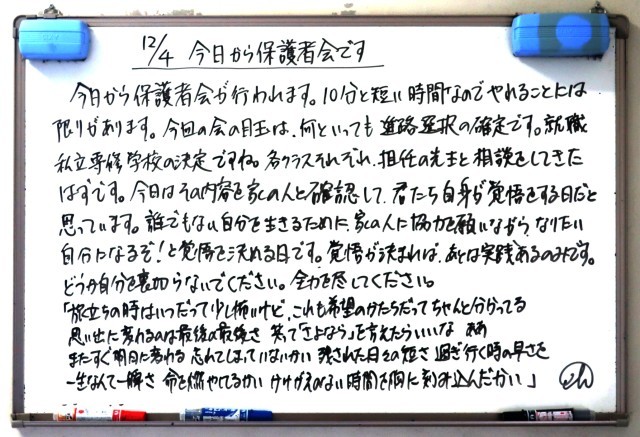 12/4 今日から保護者会です
今日から保護者会が行われます。10分と短い時間なのでやれることには
限りがあります。今回の会の目玉は、何といっても進路選択の確定です。就職
私立専修学校の決定ですね。各クラスそれぞれ、担任の先生と相談をしてきた
はずです。今日はその内容を家の人と確認して、君たち自身が覚悟をする日だと
思っています。誰でもない自分を生きるために、家の人に協力を願いながら、なりたい
自分になるぞ!と覚悟を決める日です。覚悟が決まれば、あとは実践あるのみです。
どうか自分を裏切らないでください。全力を尽してください。
「旅立ちの時はいつだって少し怖いけど、これも希望のかたちだってちゃんと分かってる
思い出に変わるのは最後の最後さ 笑って「さよなら」を言えたらいいな ああ
またすぐ明日に変わる 忘れてしまっていないかい 残された日々の短さ 過ぎ行く時の早さを
一生なんて一瞬さ 命を燃やしてるかい かけがえのない時間を胸に刻み込んだかい」